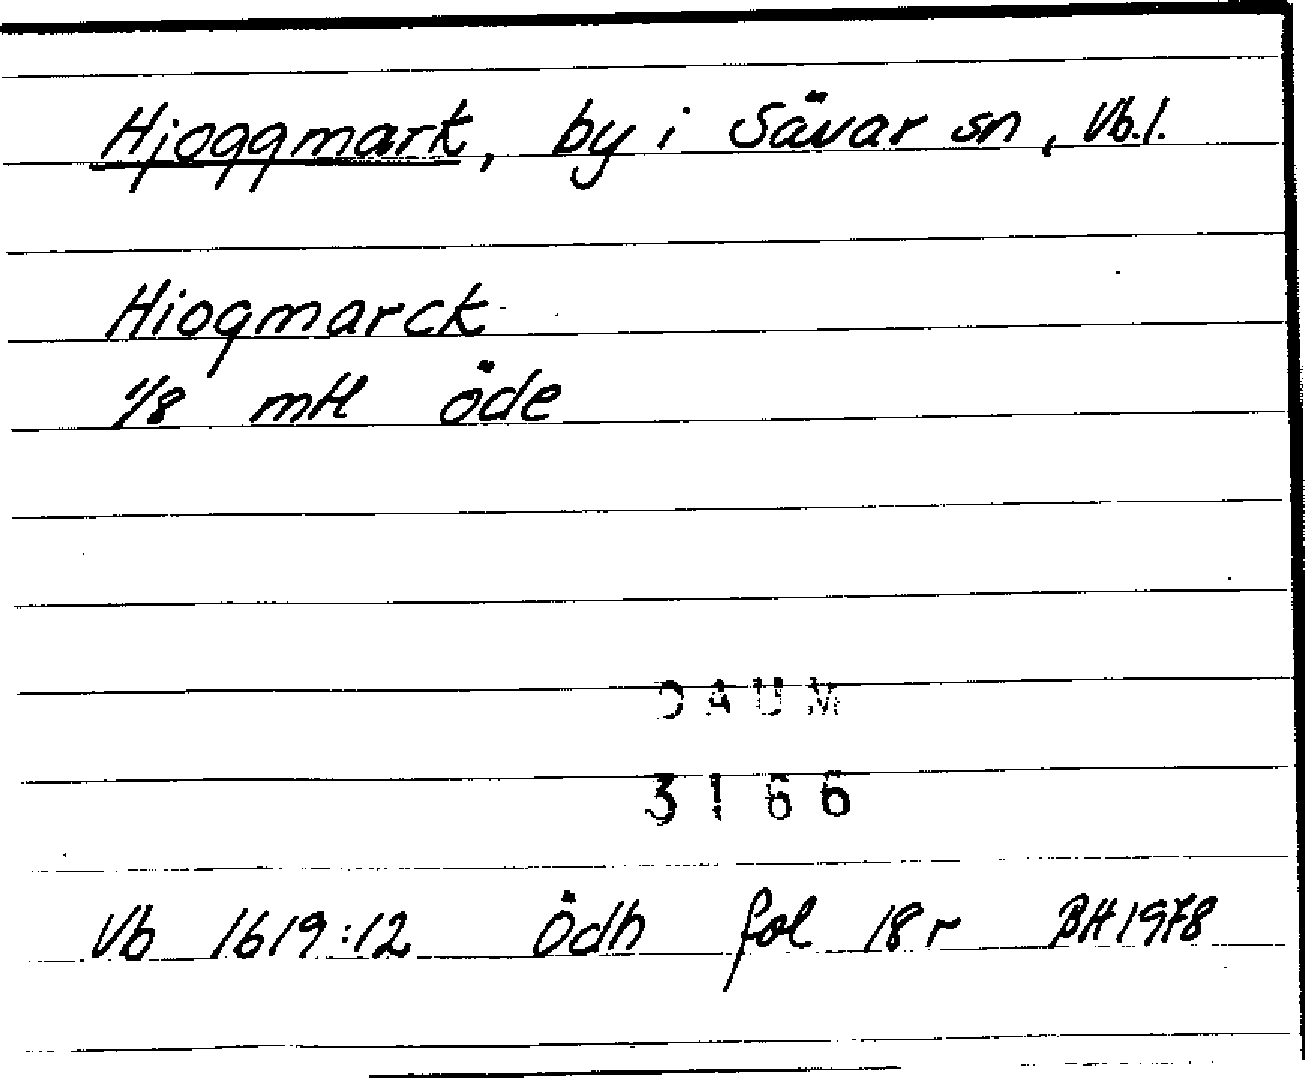 Hjoggmark, by i Sävar sn, Vb.l.
Hiogmarck
1/8 mtl öde
DAUM
3166
Vb 1619:12 Ödh fol 18r BH1978